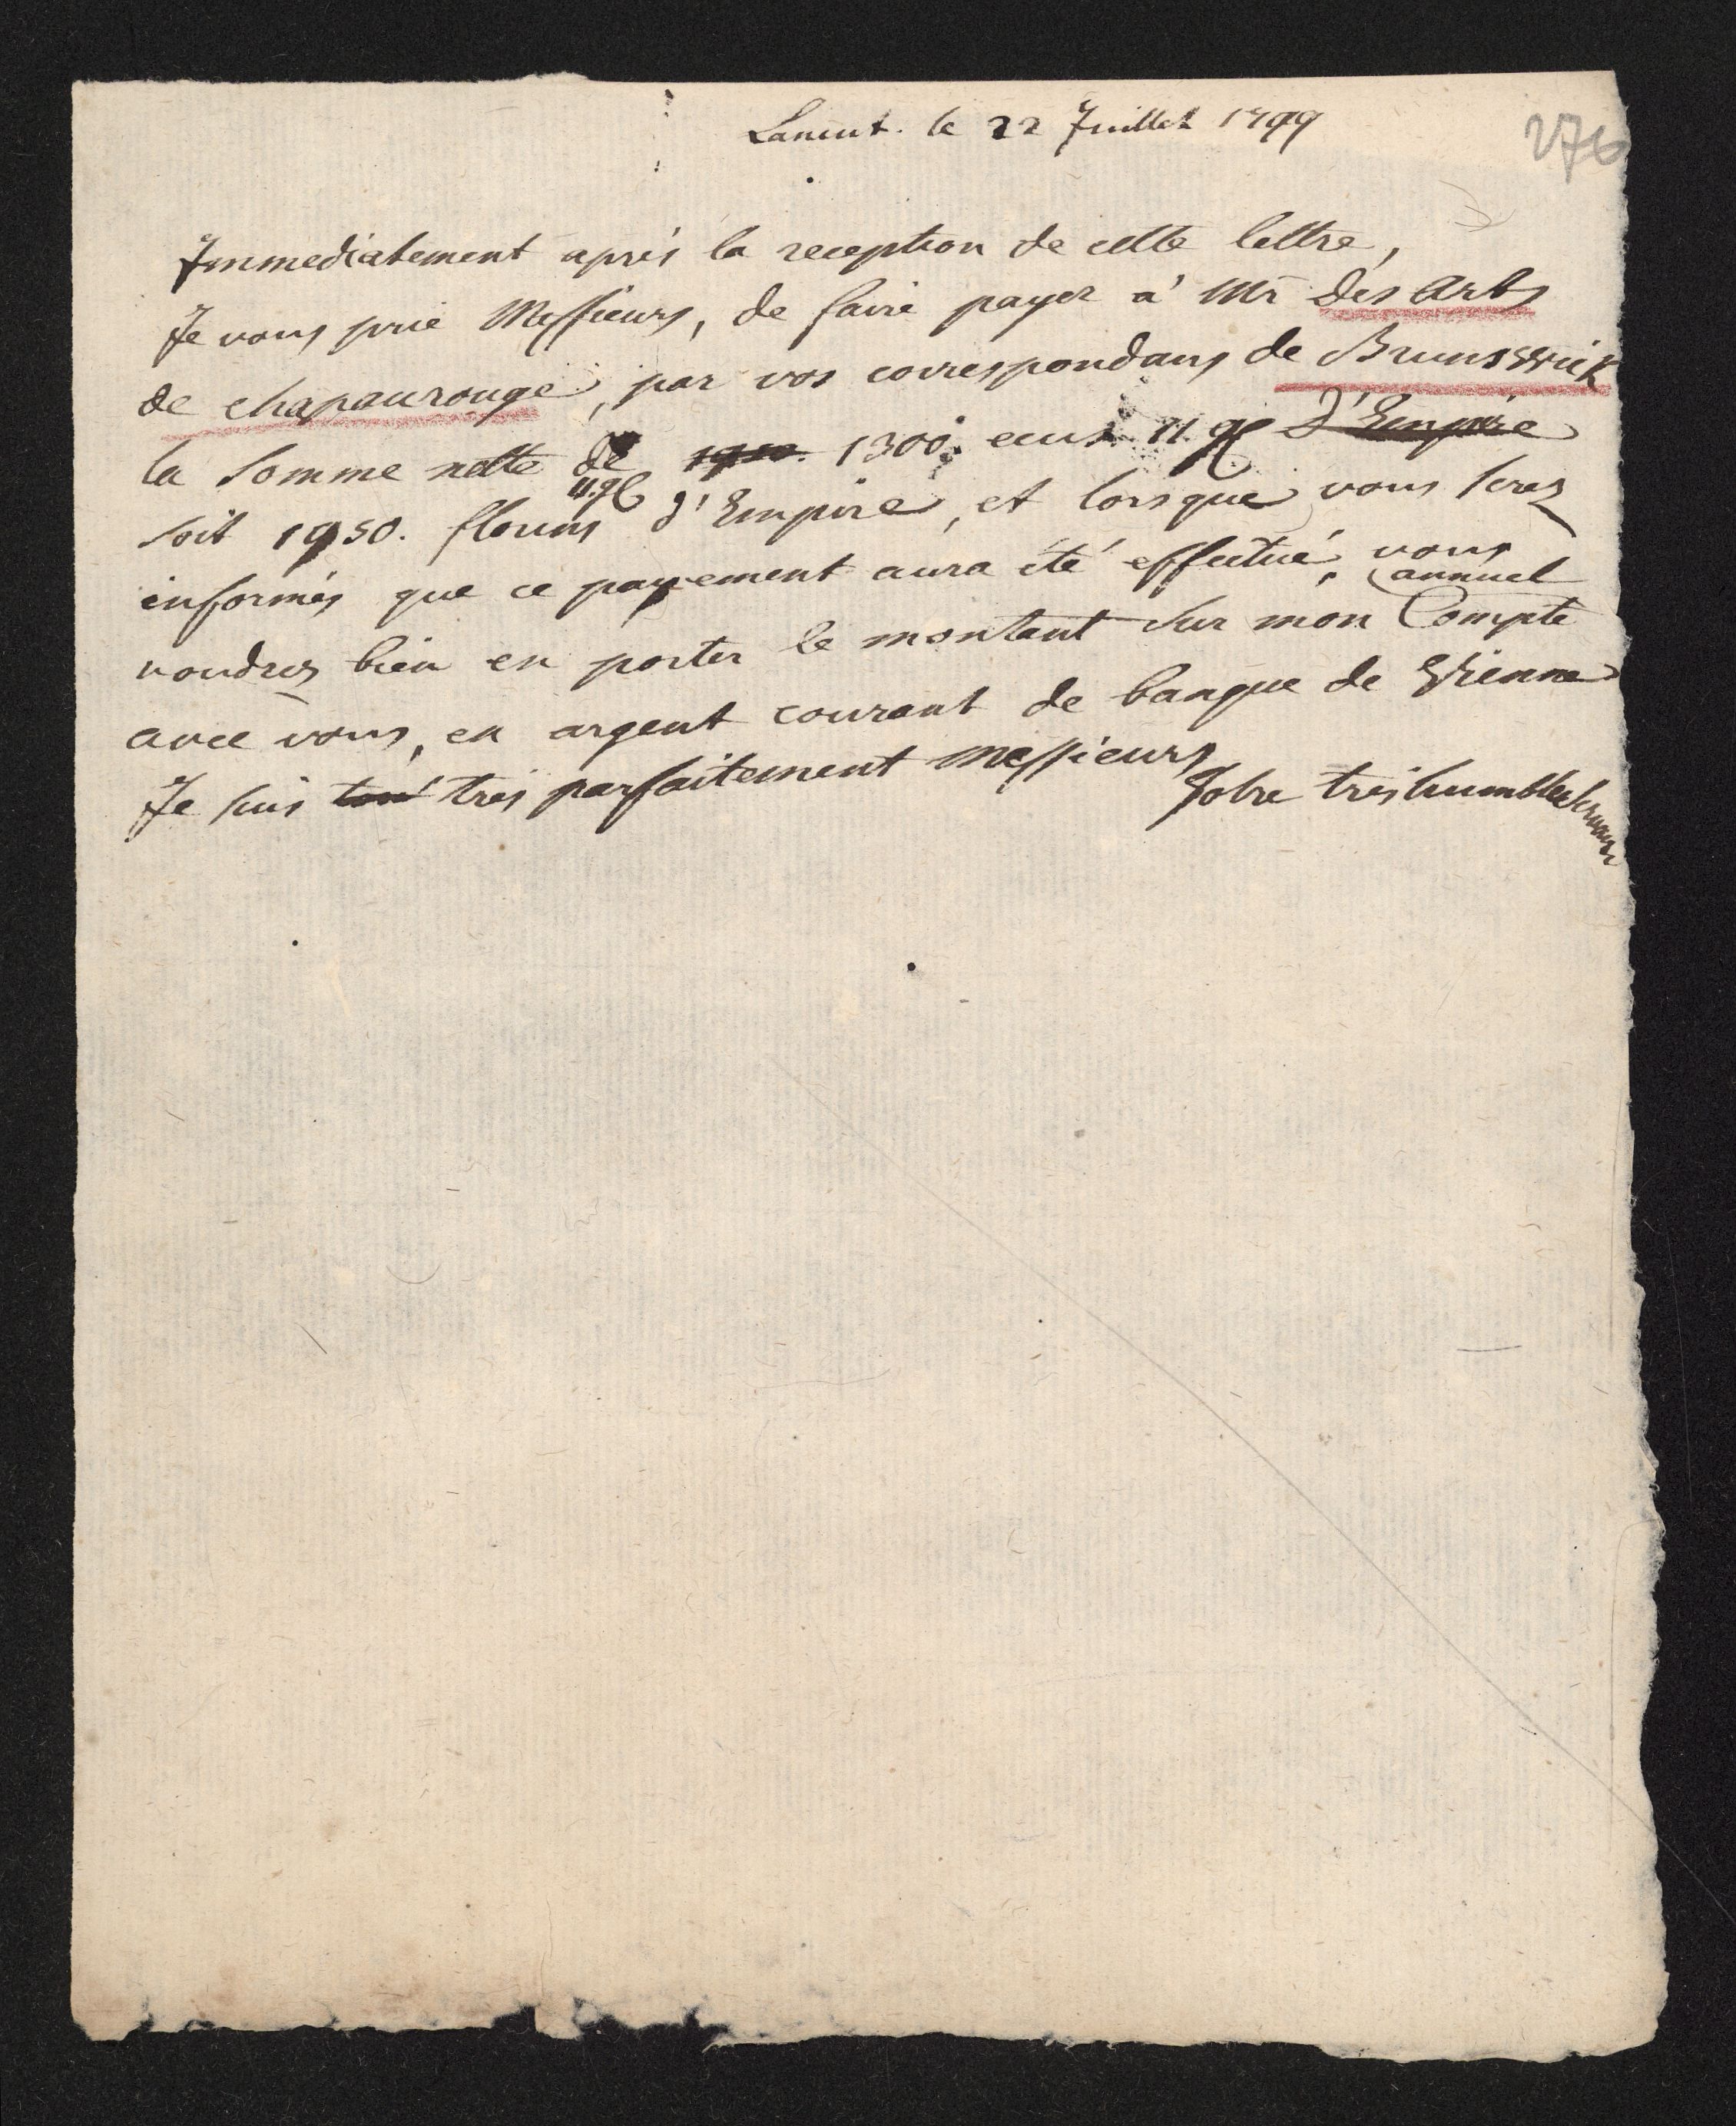 Lancut. le 22 Juillet 1799
276
Immediatement après la reception de cette lettre,
Je vous prie Messieurs, de faire payer a' Mr Des Arts
de chapeaurouge, par vos correspondans de Brunswick
la Somme nette de 1950. 1300. ecus 11. gl d'Empire
soit 1950. florins 11.gl d'Empire, et lorsque vous serez
informés que ce payement aura été effectué, vous
voudrez bien en porter le montant sur mon Compte annuel
avec vous, en argent courant de banque de Vienne
Je suis tout très parfaitement Messieurs
Votre très humble Servante